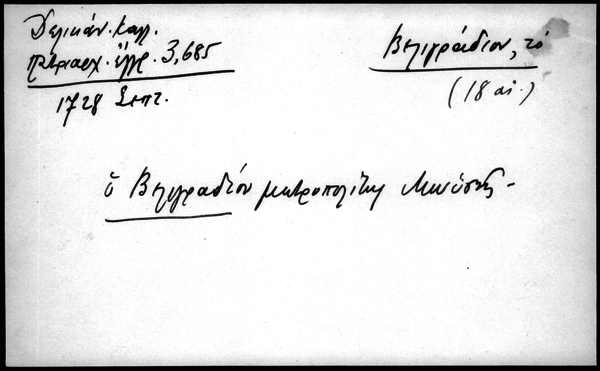 Δελικάν. Καλλ.
Πατριαρχ. ἔγγρ. 3,685
1728 Σεπτ.
Βελιγράδιον, τό
(18 αἰ.)
ὁ Βελιγραδίου μητροπολίτης Μωϋσῆς -